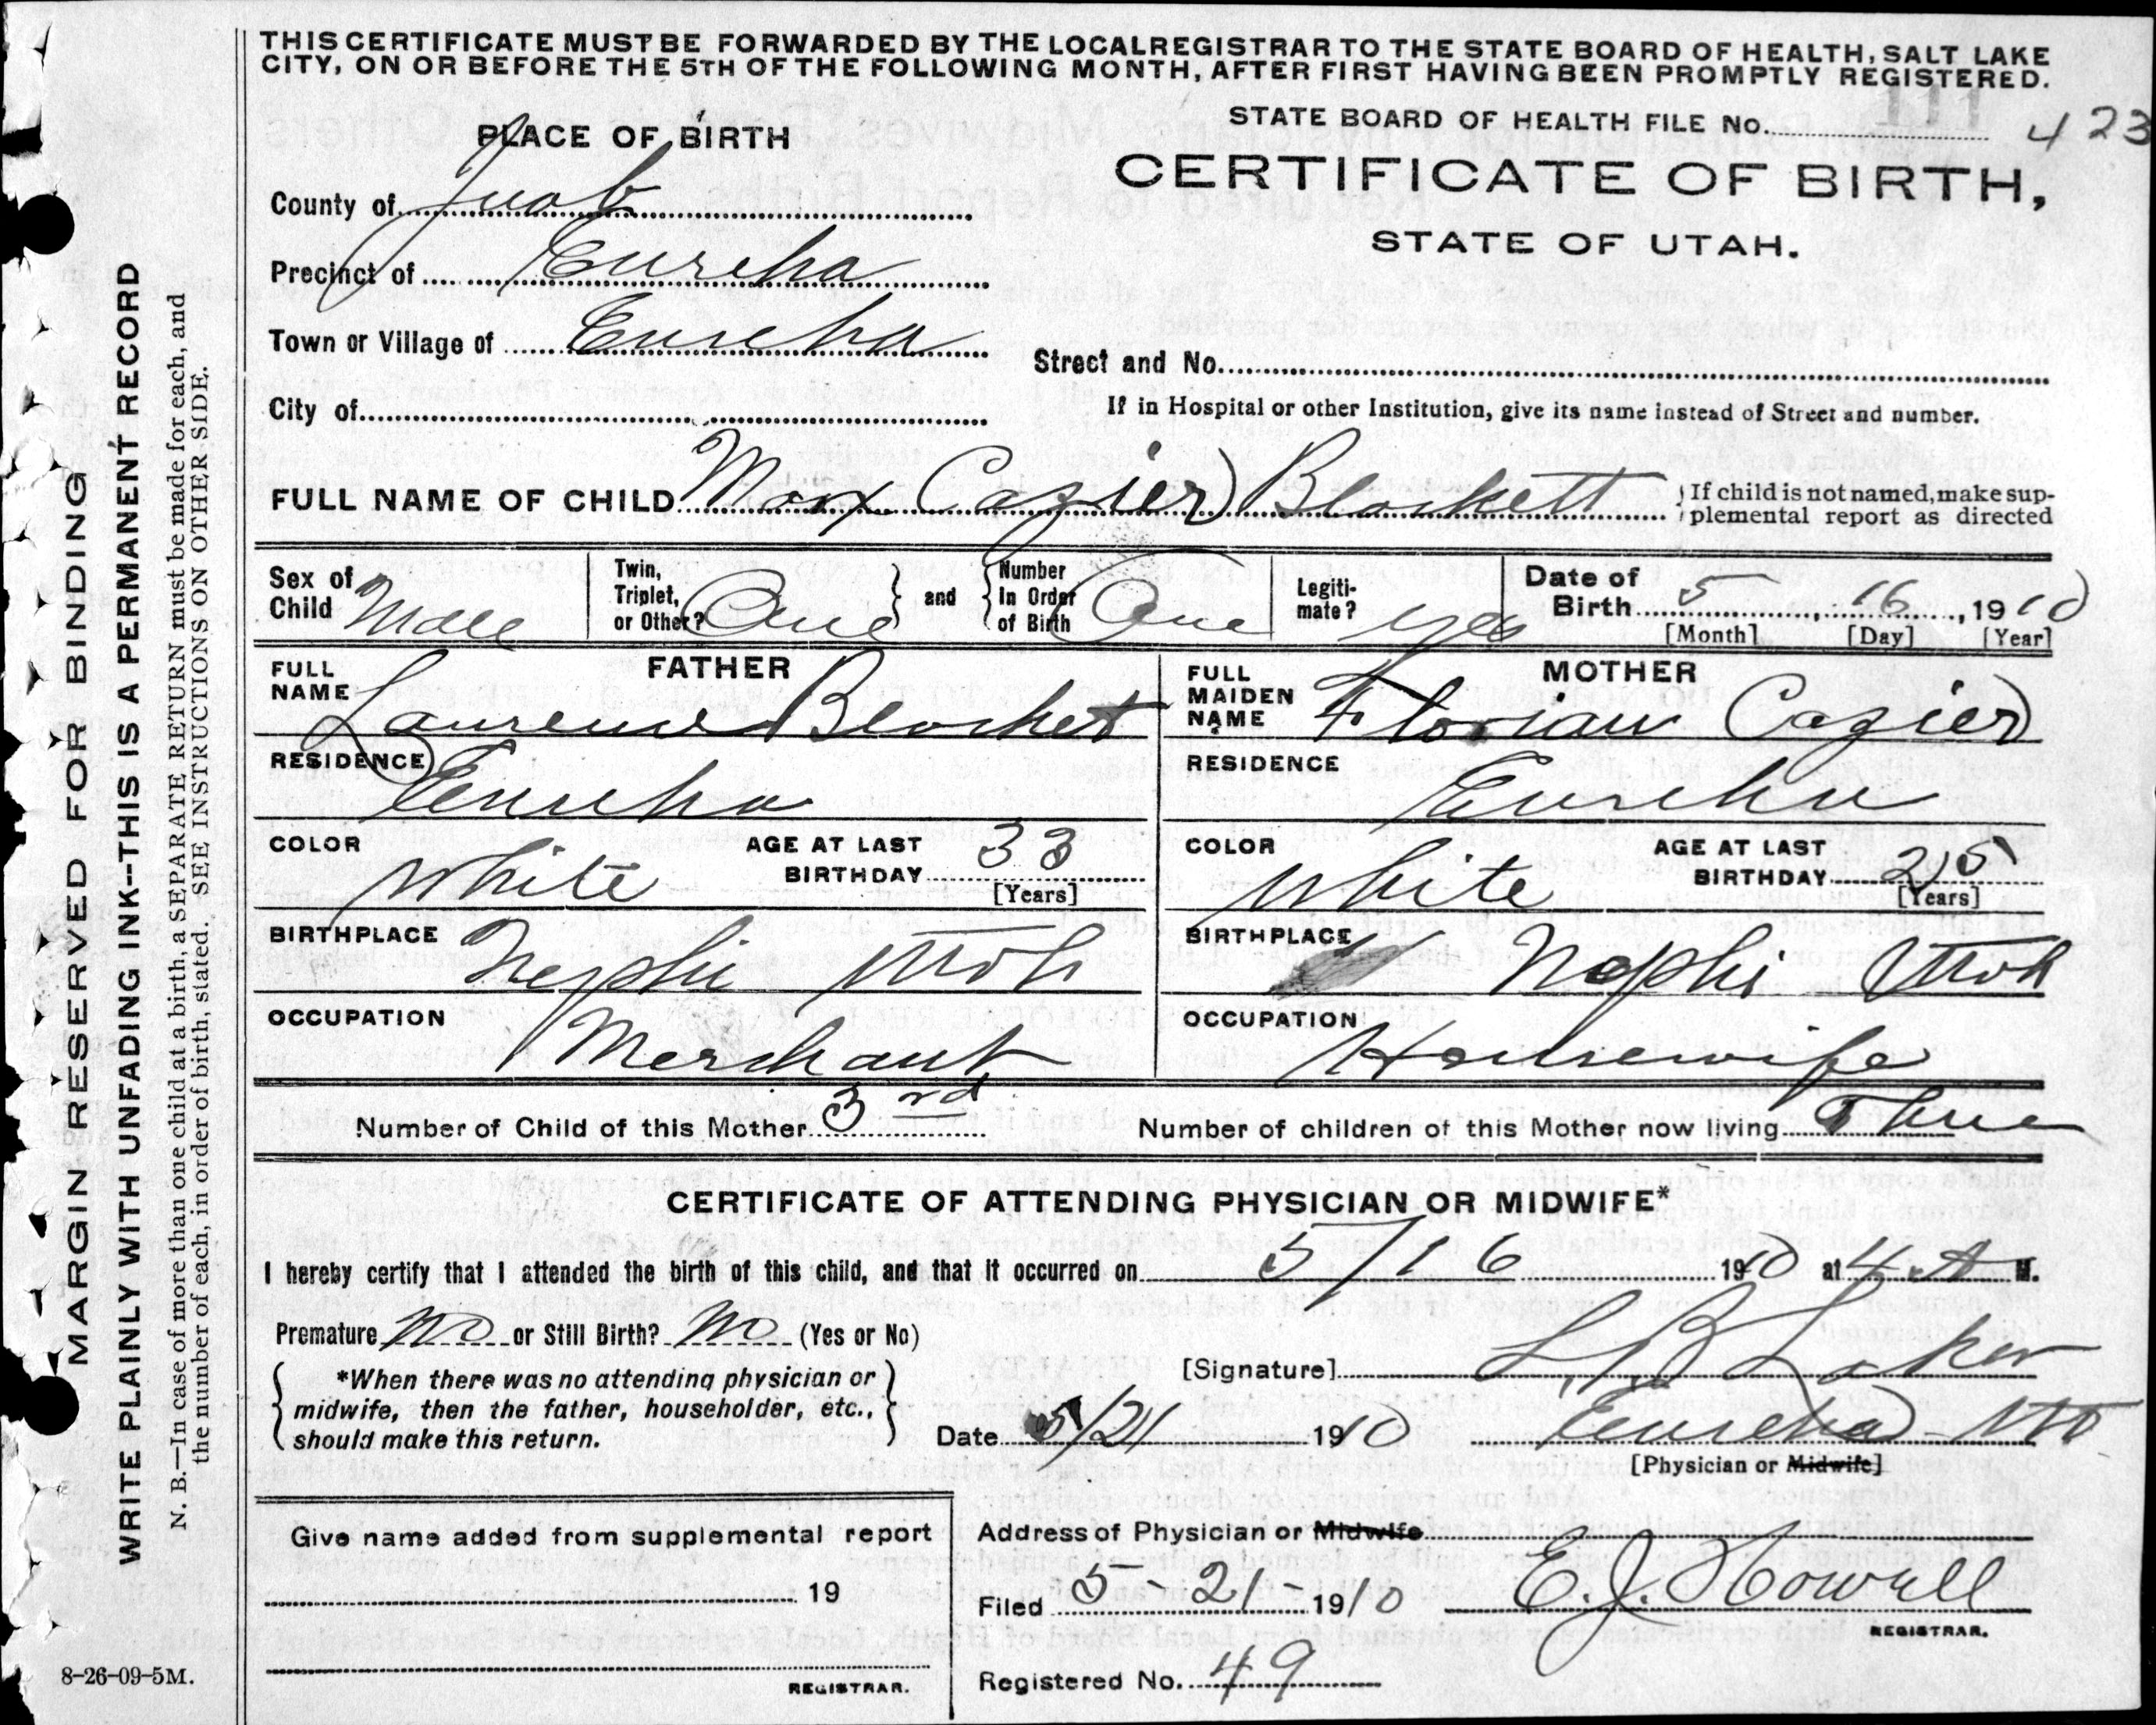 THIS CERTIFICATE MUST BE FORWARDED BY THE LOCAL REGISTRAR TO THE STATE BOARD OF HEALTH, SALT LAKE
CITY, ON OR BEFORE THE 5TH OF THE FOLLOWING MONTH, AFTER FIRST HAVING BEEN PROMPTLY REGISTERED.
STATE BOARD OF HEALTH FILE No. 111 423
PLACE OF BIRTH
CERTIFICATE OF BIRTH,
STATE OF UTAH.
County of Juab
Precinct of Eureka
Town or Village of Eureka
Street and No.
City of
If in Hospital or other Institution, give its name instead of Street and number.
FULL NAME OF CHILD Max Cazier Blackett
If child is not named, make sup-
plemental report as directed
Sex of Child Male
Twin, Triplet, or Other? One
and
Number In Order of Birth One
Legiti-
mate? yes
Date of Birth 5, 16, 1910
[Month] [Day] [Year]
FATHER
FULL NAME Laurence Blacket
RESIDENCE Eureka
COLOR White
AGE AT LAST BIRTHDAY 33
[Years]
BIRTHPLACE Nephi Utah
OCCUPATION Merchant
MOTHER
FULL MAIDEN NAME Cazier
RESIDENCE Eureka
COLOR White
AGE AT LAST BIRTHDAY 25
[Years]
BIRTHPLACE Nephi Utah
OCCUPATION Housewife
Number of Child of this Mother 3rd
Number of children of this Mother now living Three
CERTIFICATE OF ATTENDING PHYSICIAN OR MIDWIFE*
I hereby certify that I attended the birth of this child, and that it occurred on 5/16 1910 at 4 A M.
Premature no or Still Birth? no (Yes or No)
*When there was no attending physician or
midwife, then the father, householder, etc.,
should make this return.
[Signature] L. B. Laker
Date 5/21 1910
Eureka Ut
[Physician or Midwife]
Give name added from supplemental report
19
REGISTRAR.
Address of Physician or Midwife
Filed 5-21-1910 E. J. Howell
REGISTRAR.
Registered No. 49
MARGIN RESERVED FOR BINDING
WRITE PLAINLY WITH UNFADING INK--THIS IS A PERMANENT RECORD
N. B.—In case of more than one child at a birth, a SEPARATE RETURN must be made for each, and
the number of each, in order of birth, stated. SEE INSTRUCTIONS ON OTHER SIDE.
8-26-09-5M.